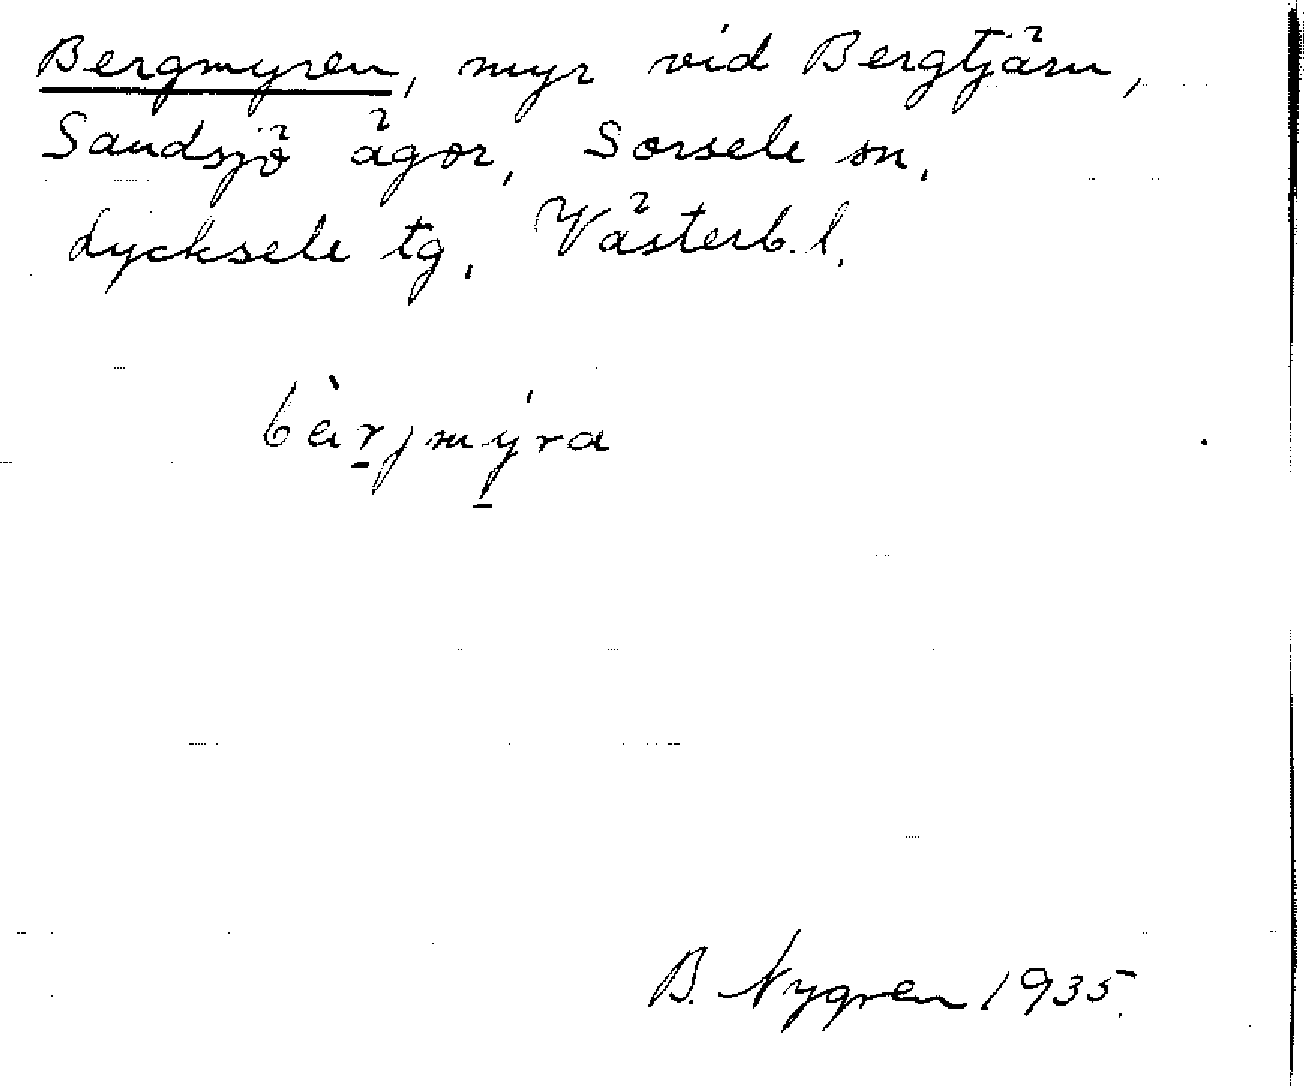 Bergmyren, myr vid Bergtjärn,
Sandsjö ägor, Sorsele sn,
Lycksele tg, Västerb. l.
bèr̲jmý̲ra
B. Nygren 1935.